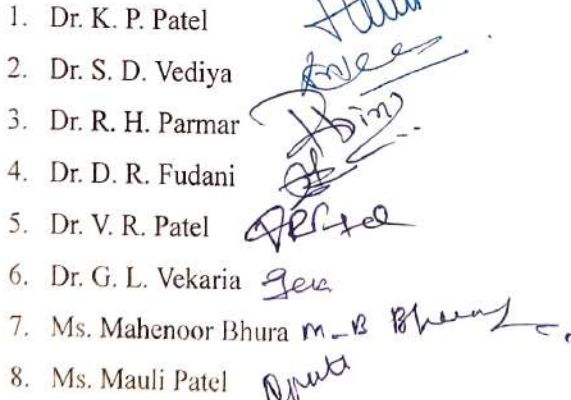 1. Dr. K. P. Patel
2. Dr. S. D. Vediya
3. Dr. R. H. Parmar
4. Dr. D. R. Fudani
5. Dr. V. R. Patel
6. Dr. G. L. Vekaria
7. Ms. Mahenoor Bhura M_B
8. Ms. Mauli Patel